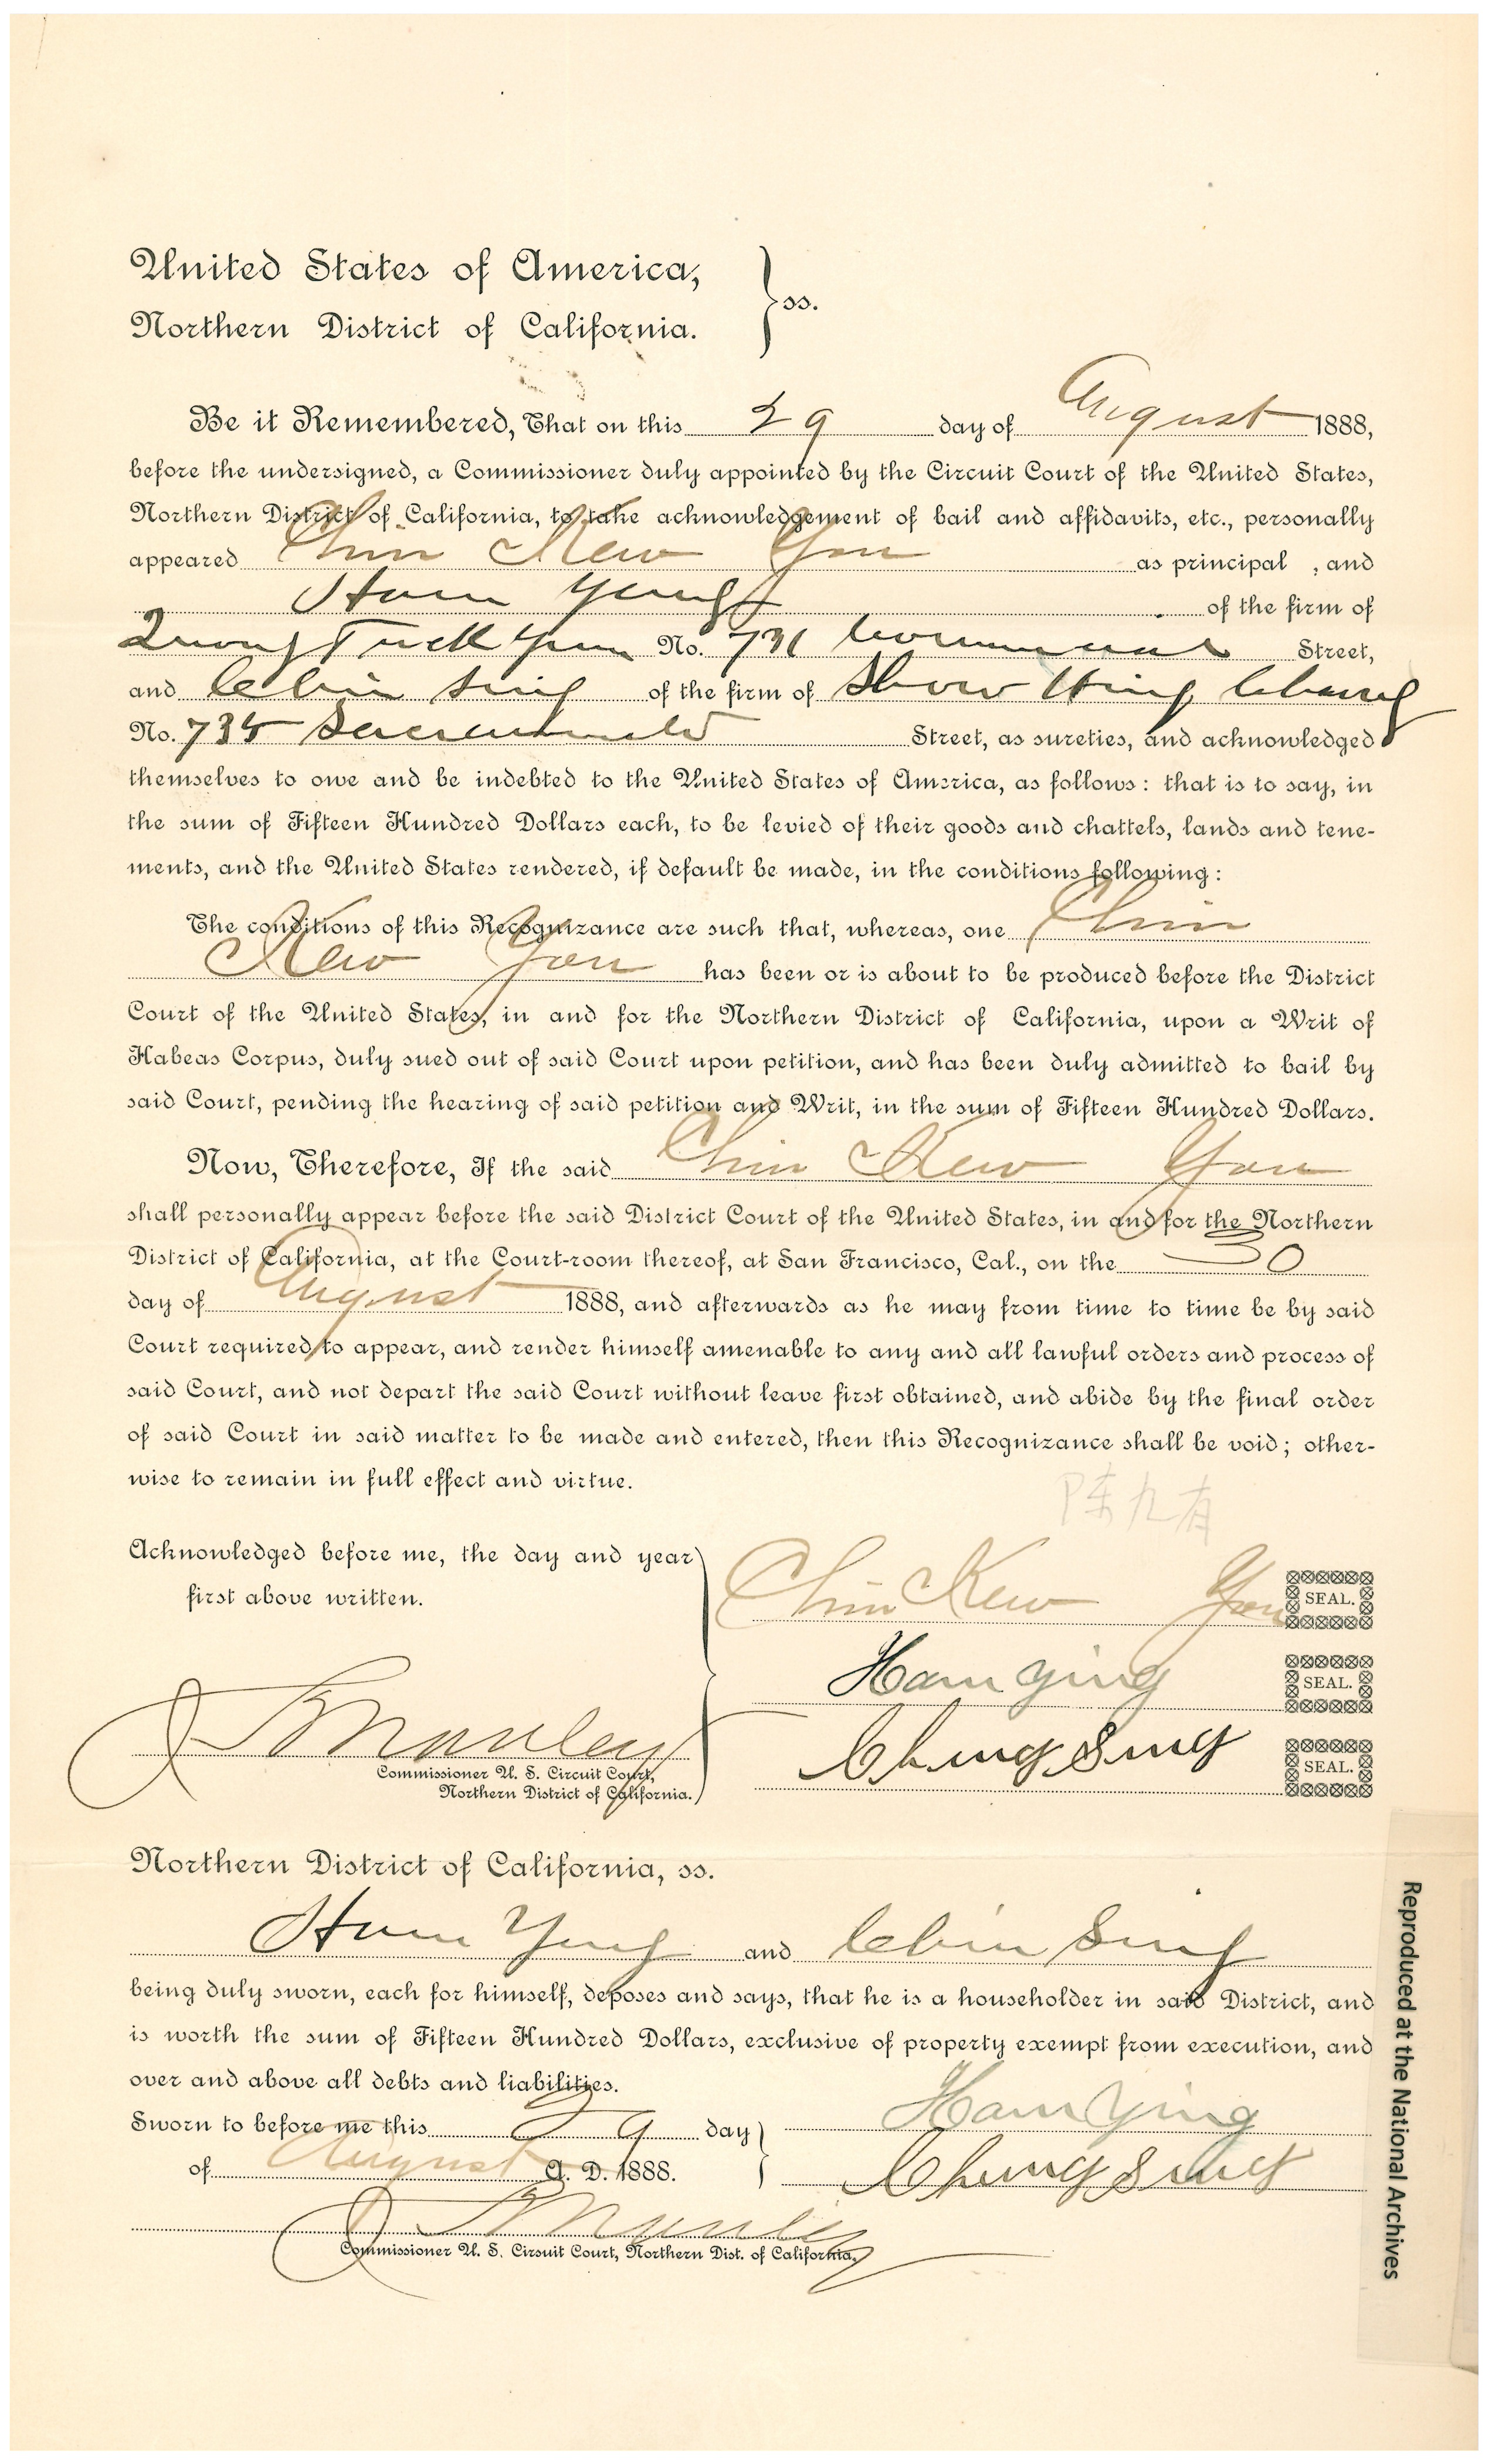 United States of America,
Northern District of California.
ss.
Be it Remembered, That on this 29 day of August 1888,
before the undersigned, a Commissioner duly appointed by the Circuit Court of the United States,
Northern District of California, to take acknowledgement of bail and affidavits, etc., personally
appeared Chin Kew You as principal , and
Ham Yeng of the firm of
Quong Tuck No. 731 Commercial Street,
and Chin Sing of the firm of Show Hing Chang
No. 735 Sacramento Street, as sureties, and acknowledged
themselves to owe and be indebted to the United States of America, as follows: that is to say, in
the sum of Fifteen Hundred Dollars each, to be levied of their goods and chattels, lands and tene-
ments, and the United States rendered, if default be made, in the conditions following:
The conditions of this Recognizance are such that, whereas, one Chin
Kew You has been or is about to be produced before the District
Court of the United States, in and for the Northern District of California, upon a Writ of
Habeas Corpus, duly sued out of said Court upon petition, and has been duly admitted to bail by
said Court, pending the hearing of said petition and Writ, in the sum of Fifteen Hundred Dollars.
Now, Therefore, If the said Chin Kew You
shall personally appear before the said District Court of the United States, in and for the Northern
District of California, at the Court-room thereof, at San Francisco, Cal., on the 30
day of August 1888, and afterwards as he may from time to time be by said
Court required to appear, and render himself amenable to any and all lawful orders and process of
said Court, and not depart the said Court without leave first obtained, and abide by the final order
of said Court in said matter to be made and entered, then this Recognizance shall be void; other-
wise to remain in full effect and virtue.
陈九有
Acknowledged before me, the day and year
first above written.
Chin Kew You SEAL.
Ham Ying SEAL.
Chung Sing SEAL.
J S Manley
Commissioner U. S. Circuit Court,
Northern District of California.
Northern District of California, ss.
Ham Yeng and Chin Sing
being duly sworn, each for himself, deposes and says, that he is a householder in said District, and
is worth the sum of Fifteen Hundred Dollars, exclusive of property exempt from execution, and
over and above all debts and liabilities.
Sworn to before me this 29 day
of August A. D. 1888.
Ham Ying
Chung Sing
J S Manley
Commissioner U. S. Circuit Court, Northern Dist. of California,
Reproduced at the National Archives